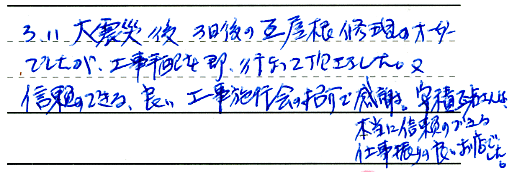 3.11 大震災後 3日後の瓦屋根修理のオーダー
でしたが、工事手配を即、行なって下さいました。又
信頼のできる、良い工事施行会の招介で感謝。安積瓦店さんは、
本当に信頼のできる
仕事振りの良いお店でした。